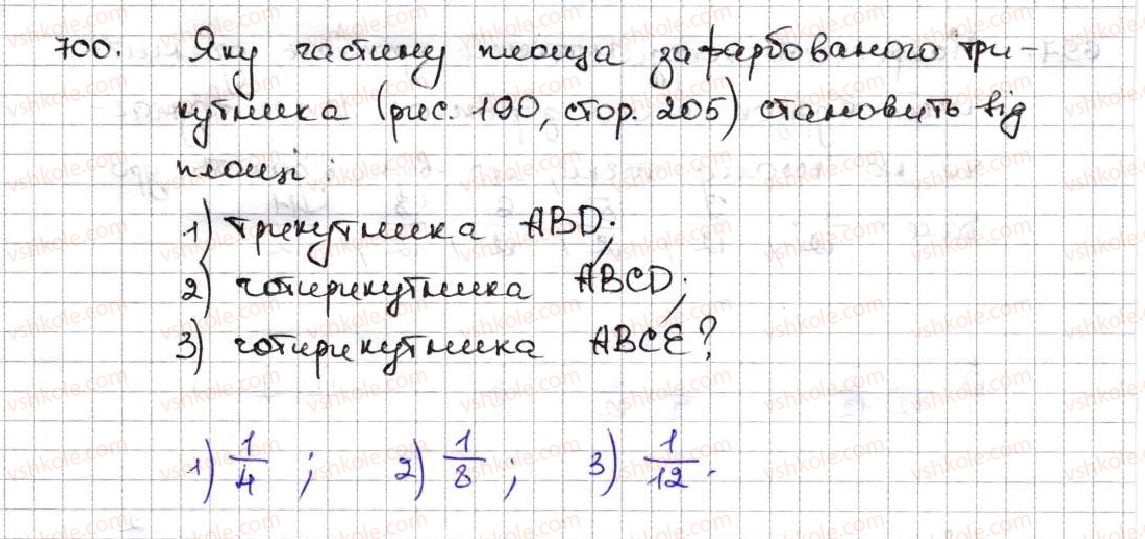 700. Яку частину площа зафарбованого три-
кутника (рис. 190, стор. 205) становить від
площі:
1) трикутника ABD;
2) чотирикутника ABCD;
3) чотирикутника ABCE?
1) 1/4 ; 2) 1/8 ; 3) 1/12.